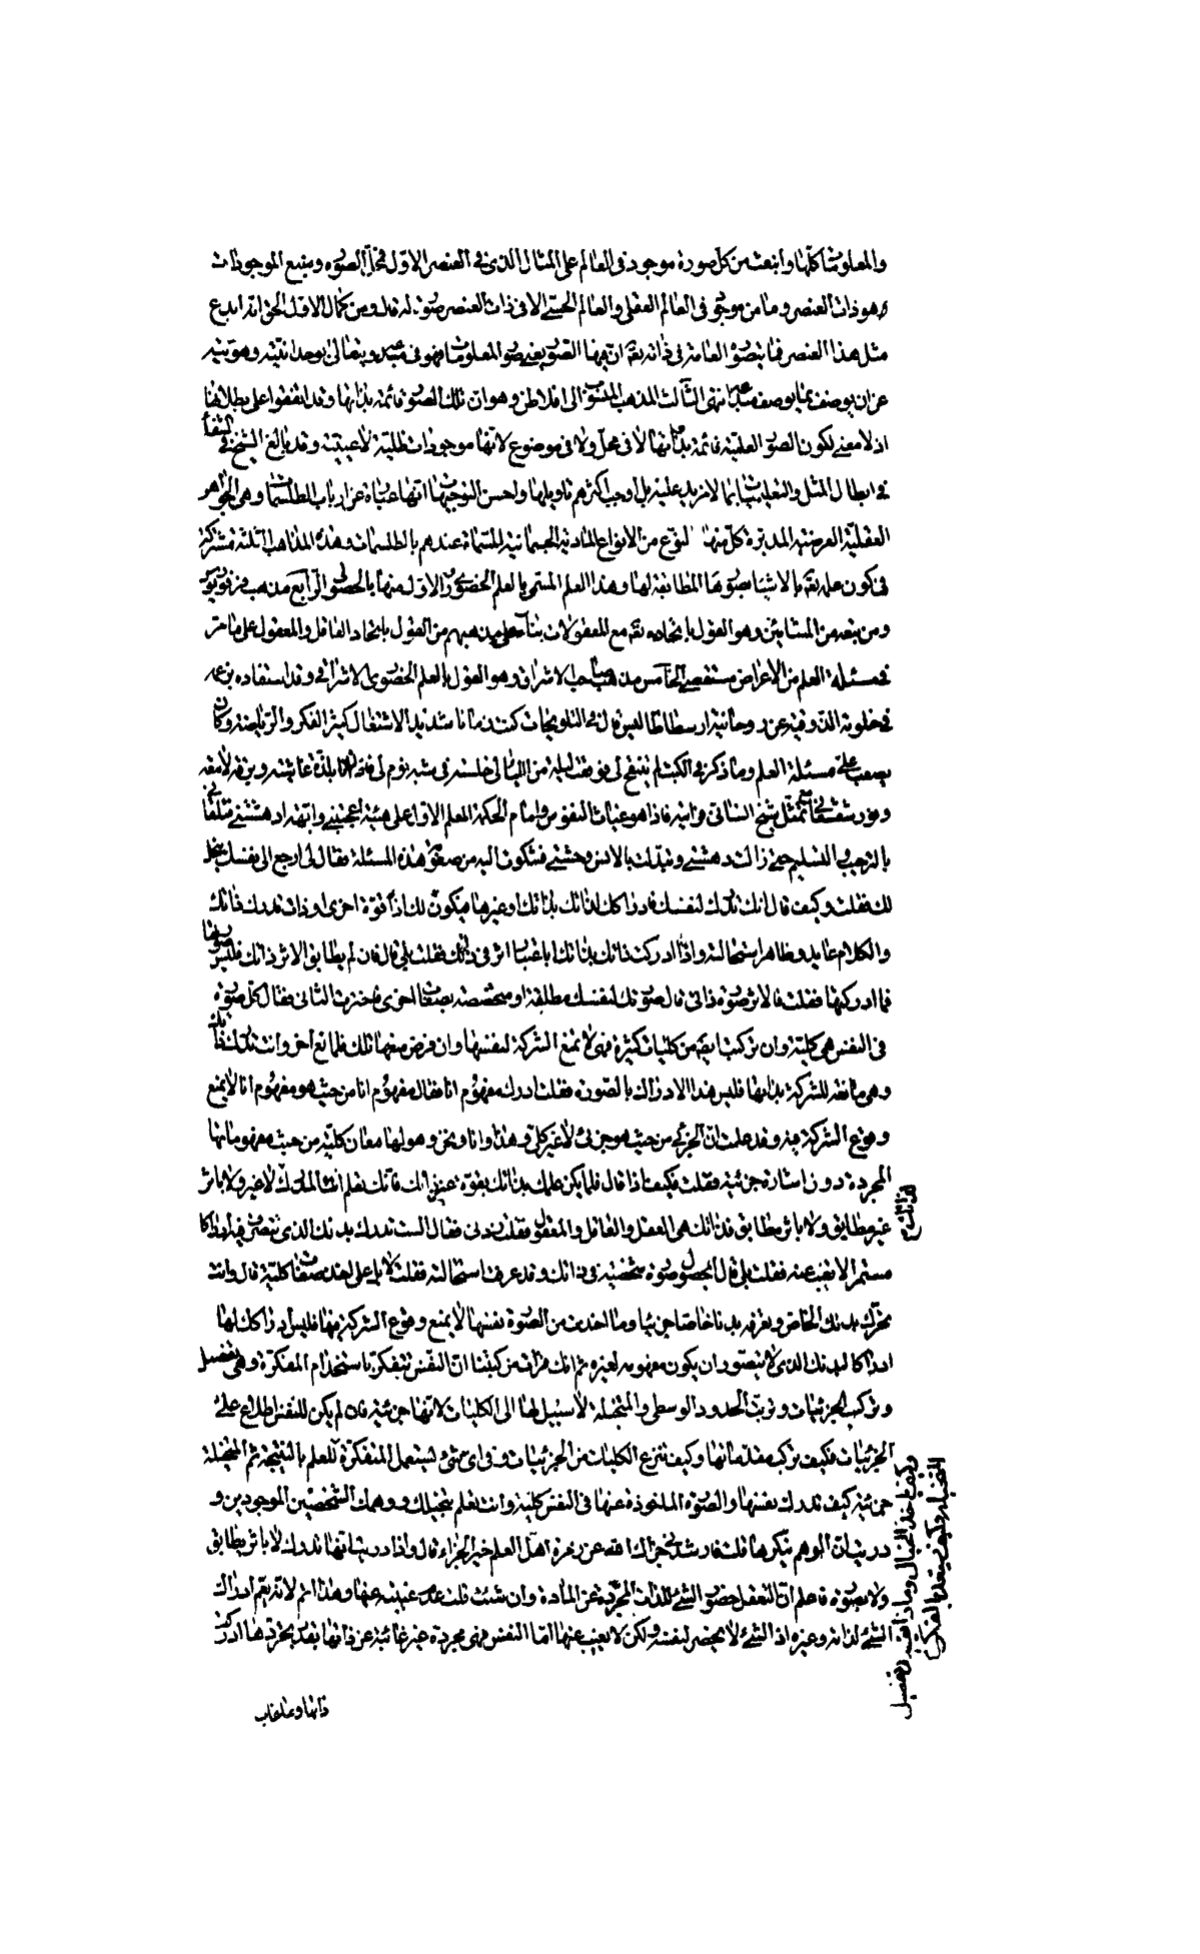 والمعلومات كلها وانبعث من كل صورة موجود في العالم على المثال الذي في العنصر الاول فمحل الصور ومنبع الموجودات
هو ذات العنصر وما من موجود في العالم العقلي والعالم الحسي الا في ذات العنصر صورة له قال ومن كمال الاول الحق انه ابدع
مثل هذا العنصر فما يتصوره العامة في ذاته تعالى ان فيها الصور يعني صور المعلومات فهو في مبدعه ويتعالى بوحدانيته وهويته
عن ان يوصف بما يوصف به مبدعه انتهى الثالث المذهب المنسوب الى افلاطن وهو ان تلك الصور قائمة بذاتها وقد اتفقوا على بطلانها
اذ لا معنى لكون الصور العلمية قائمة بذاتها لا في محل ولا في موضوع لانها موجودات ظلية لا عينية وقد بالغ الشيخ في الشفا
في ابطال المثل والتعليميات بما لا مزيد عليه بل اوجب اكثرهم تاويلها واحسن التوجيهات انها عبارة عن ارباب الطلسمات وهي الجواهر
العقلية العرضية المدبرة كل منها لنوع من الانواع المادية الجسمانية المسماة عندهم بالطلسمات وهذه المذاهب الثلثة مشتركة
في كون علمه تعالى بالاشياء بصورها المطابقة لها وهذا العلم المسمى بالعلم الحصولي الرابع مذهب فرفوريوس
ومن تبعه من المشائين وهو القول باتحاده تعالى مع المعقولات بناء على مذهبهم من القول باتحاد العاقل والمعقول على ما مر
في مسئلة العلم من الاعراض مستقصى الخامس مذهب صاحب الاشراق وهو القول بالعلم الحضوري الاشراقي وقد استفاده بزعمه
في خلوته الذوقية عن روحانية ارسطاطاليس قال في التلويحات كنت زمانا شديد الاشتغال كثير الفكر والرياضة وكان
يصعب علي مسئلة العلم وما ذكر في الكتب لم يتنقح لي فوقعت ليلة من الليالي خلسة في شبه نوم لي فاذا انا بلذة غاشية وبرقة لامعة
ونور شعشعاني مع تمثل شبح انساني فرايته فاذا هو غياث النفوس وامام الحكمة المعلم الاول على هيئة اعجبتني وابهة ادهشتني فتلقاني
بالترحيب والتسليم حتى زالت دهشتي وتبدلت بالانس وحشتي فشكوت اليه من صعوبة هذه المسئلة فقال لي ارجع الى نفسك ينحل
لك فقلت وكيف قال انك تدرك لنفسك فادراكك لذاتك بذاتك او غيرها فيكون لك اذا قوة اخرى او ذات تدرك ذاتك
والكلام عايد وظاهر استحالته واذا ادركت ذاتك بذاتك اباعتبار اثر في ذاتك فقلت بلى قال فان لم يطابق الاثر ذاتك فليس صورتها
فما ادركتها فقلت فالاثر صورة ذاتي قال صورتك لنفسك مطلقة او متخصصة بصفات اخرى فاخترت الثاني فقال كل صورة
في النفس هي كلية وان تركبت ايضا من كليات كثيرة فهي لا تمنع الشركة لنفسها وان فرض منعها تلك فلمانع اخر وانت تدرك ذاتك
وهي مانعة للشركة بذاتها فليس هذا الادراك بالصورة فقلت ادرك مفهوم انا فقال مفهوم انا من حيث هو مفهوم انا لا يمنع
وقوع الشركة فيه وقد علمت ان الجزئي من حيث هو جزئي لا غير كلي وهذا وانا ونحن وهو لها معان كلية من حيث مفهوماتها
المجردة دون اشارة جزئية فقلت فكيف اذا قال فلما لم يكن علمك بذاتك بقوة غير ذاتك فانك تعلم انك المدرك لذاتك لا غير ولا باثر
غير مطابق ولا باثر مطابق فذاتك هي العقل والعاقل والمعقول فقلت زدني فقال الست تدرك بدنك الذي تتصرف فيه ادراكا
مستمرا لا يغيب عنه فقلت بلى قال ابحصول صورة شخصية في ذاتك وقد عرفت استحالته فقلت لا بل على اخذ صفات كلية قال وانت
تحرك بدنك الخاص وتعرفه بدنا خاصا جزئيا وما اخذت من الصورة نفسها لا يمنع وقوع الشركة فيها فليس ادراكك لها
ادراكا لبدنك الذي لا يتصور ان يكون مفهومه لغيره ثم انك قرات من كتبنا ان النفس تتفكر باستخدام المفكرة وهي تفصيل
وتركب الجزئيات وترتب الحدود الوسطى والمتخيلة لا سبيل لها الى الكليات لانها جزئية فان لم يكن للنفس اطلاع على
الجزئيات فكيف تركب مقدماتها وكيف تنتزع الكليات من الجزئيات وفي اي شيء تستعمل المتفكرة للعلم بالنتيجة ثم المتخيلة
جزئية كيف تدرك نفسها والصورة الماخوذة عنها في النفس كلية وانت تعلم بتخيلك ووهمك الشخصين الموجودين و
دريت ان الوهم ينكرها قلت فارشدني جزاك الله عن زمرة اهل العلم خير الجزاء قال واذا دريت انها تدرك لا باثر يطابق
ولا بصورة فاعلم ان التعقل حضور الشيء للذات المجردة عن المادة وان شئت قلت عدم غيبته عنها وهذا اتم لانه يعم ادراك
الشيء لذاته وغيره اذ الشيء لا يحضر لنفسه ولكن لا يغيب عنها اما النفس فهي مجردة غير غائبة عن ذاتها فبقدر تجردها ادركت
ذاتها وما غاب